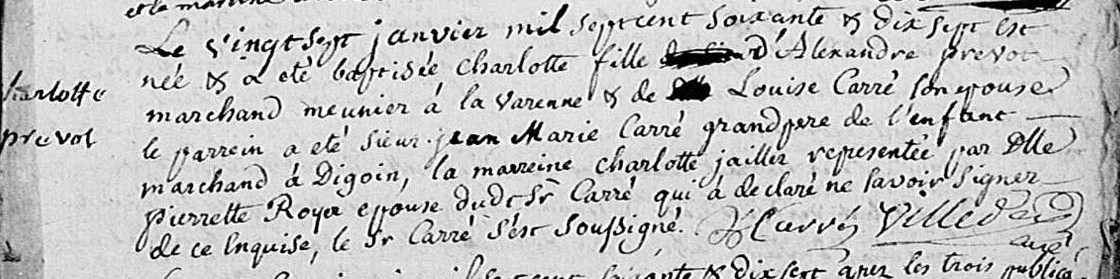 et la
Le vingt sept janvier mil sept cent soixante & dix sept est
née & a eté baptisée Charlotte fille d'Alexandre prevot
marchand meunier á la varenne & de Louise Carré son epouse
Charlotte
prevot
le parrein a eté sieur jean Marie Carré grandpere de l'enfant
marchand á Digoin, la marreine charlotte jailler representée par Dlle
pierrette Royer epouse dudt Sr Carré qui á declaré ne savoir signer
de ce Enquise, le Sr Carré s'est soussigné. Carré Villed
curé
sept cent soixante & dix sept apres les trois publica